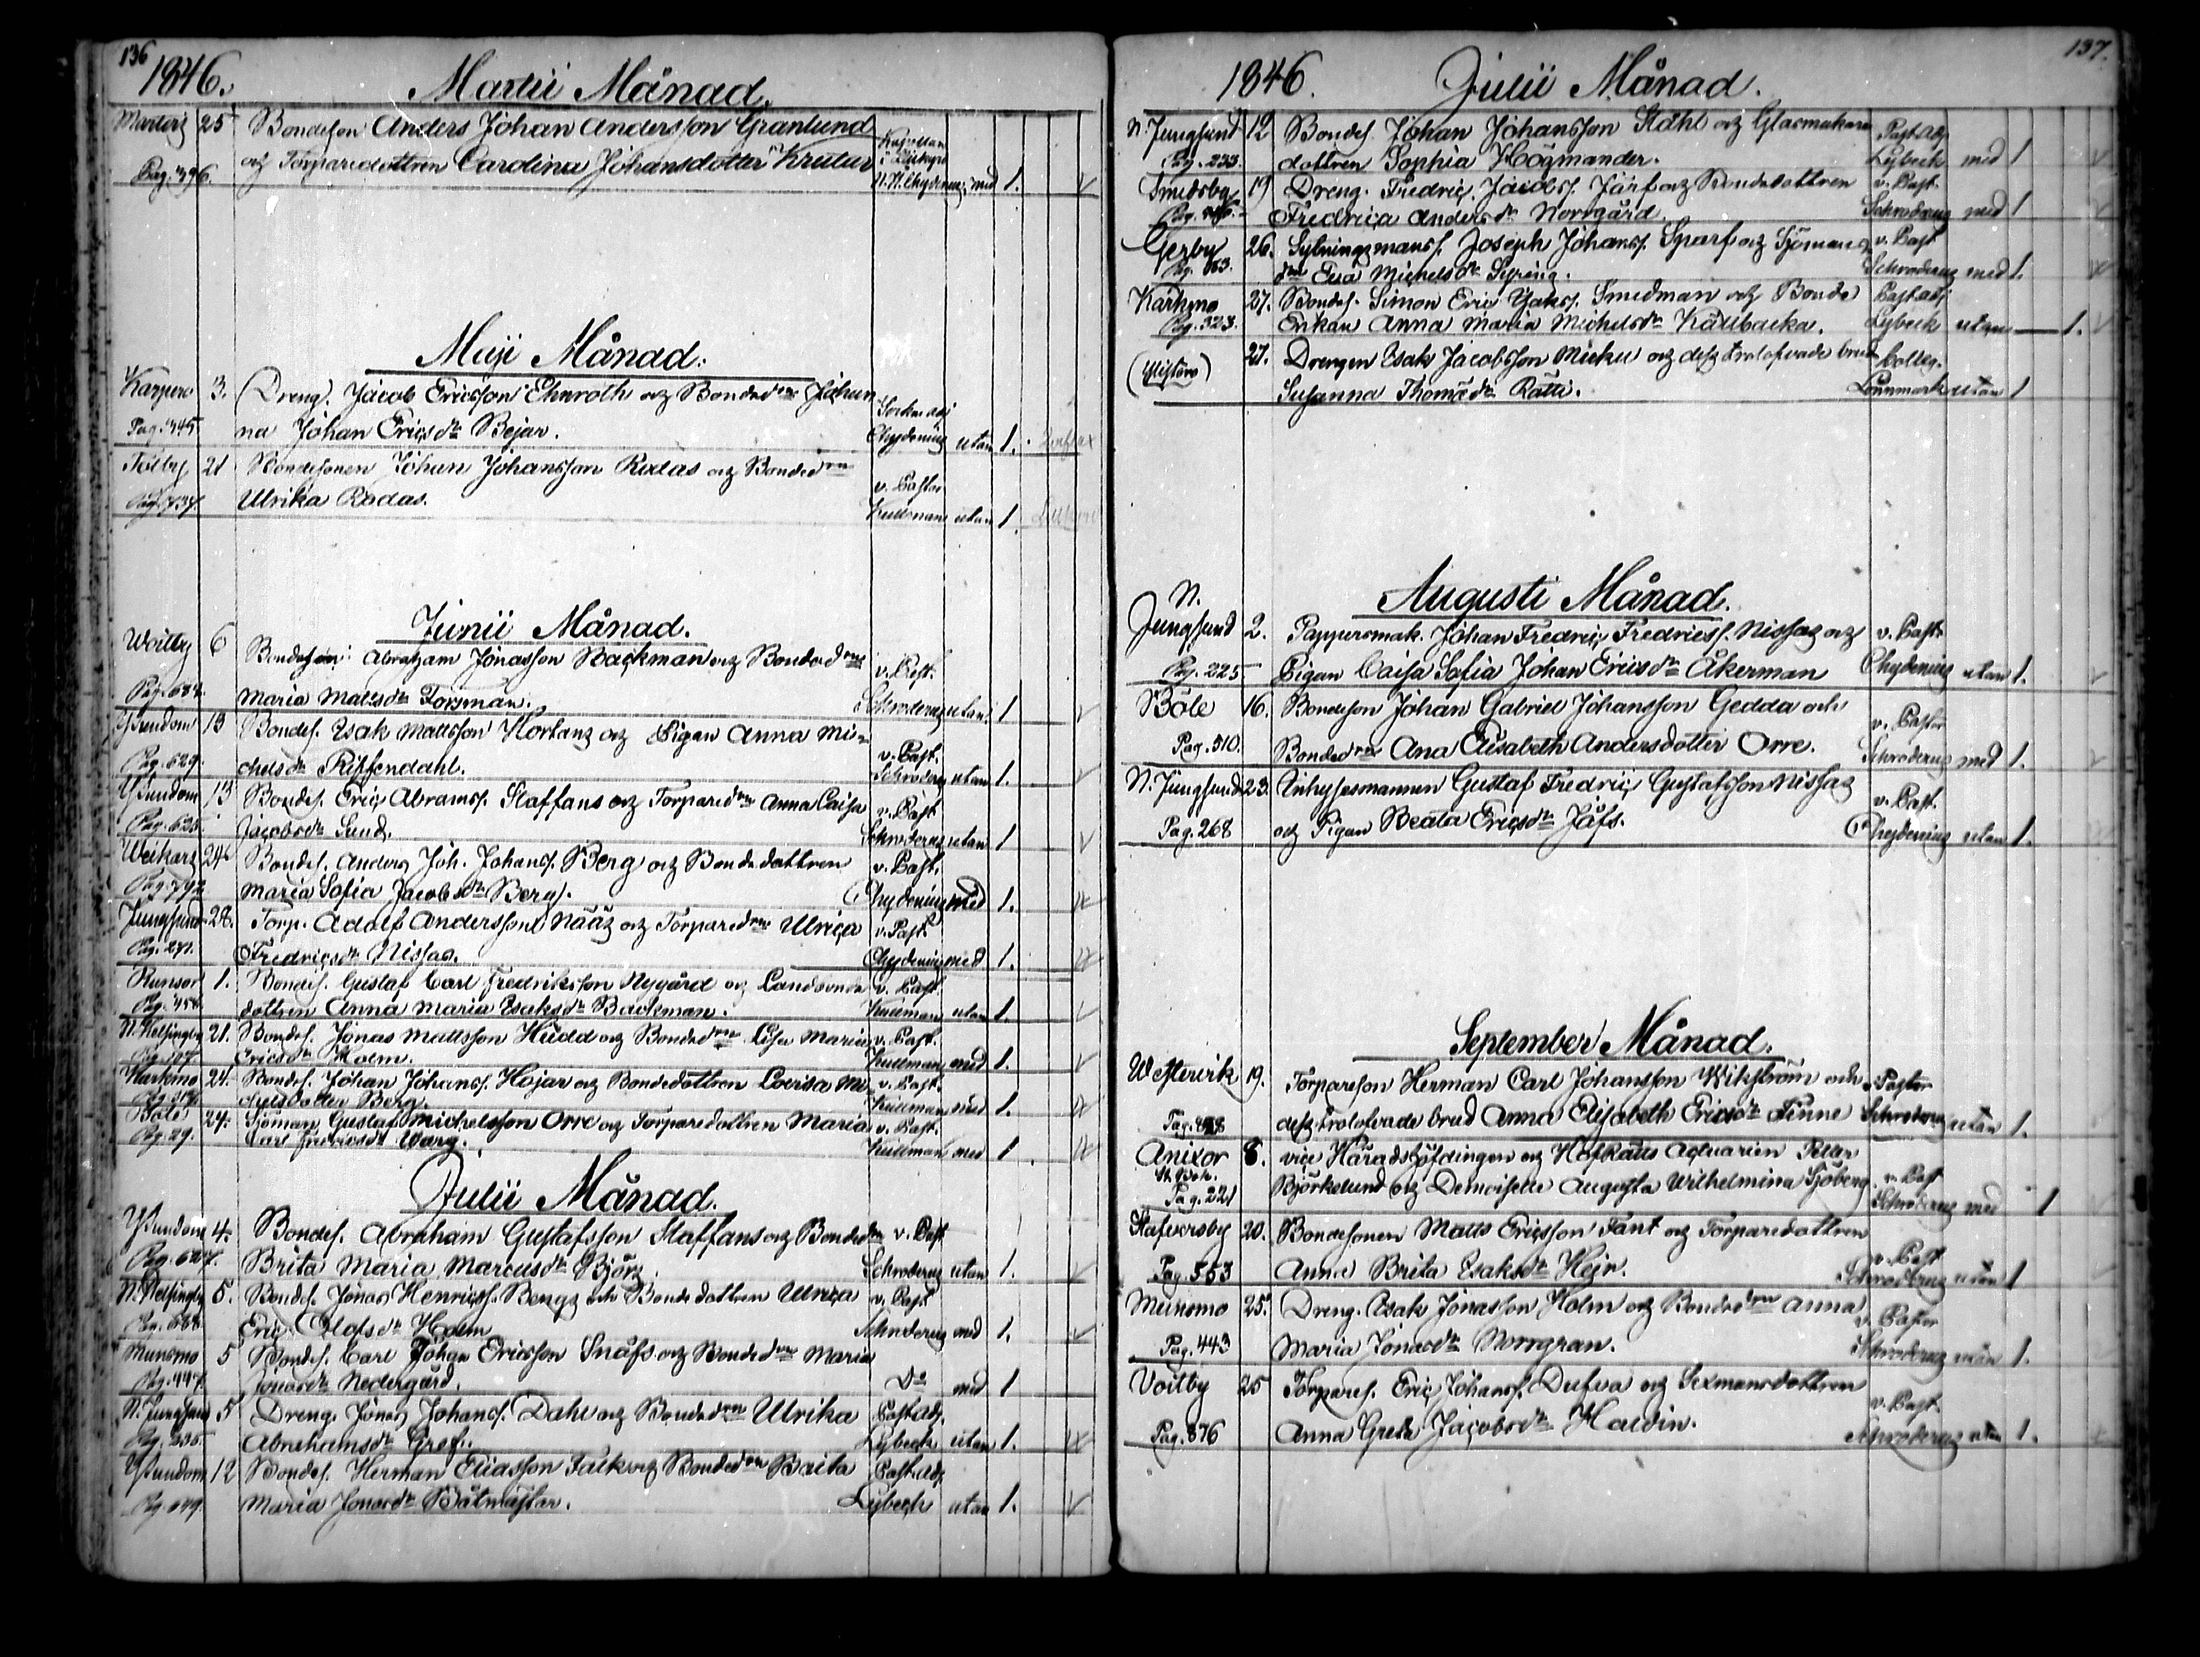 136
1846. Martii Månad.
Martoij 25 Bondeson Anders Johan Andersson Granlund
Pag. 396. och Torparedottren Carolina Johansdotter Krutur Kapellan i Lillkyro N. N. Chydenius med 1.
Maji Månad:
Karpero 3. Dreng. Jacob Ericsson Ehnroth och Bonded:n Johan
Pag. 345 na Johan Ericsd:r Bejar. Chydenius utan 1.
Tölby 21 Bondesonen Johan Johansson Rudas och Bonded:n v. Pastor
Ulrika Rodas. Kullman utan 1
Junii Månad.
Woitby 6 Bondeson: Abraham Jonasson Backman och Bonded:n v. Past.
Pag. 682. Maria Mattsd:r Forsman. Schroderus utan 1
Yttersundom 13 Bondes. Esak Mattsson Hortans och Pigan Anna Mi- v. Past.
Pag. 629. chelsd:r Riffendahl. Schroderus utan 1.
Sundom 13 Bondes. Eric Abramss. Staffans och Torpared:n Anna Caisa v. Past
Pag. 635. Jacobsd:r Sund. Schroderus utan 1
Weikars 24 Bondes. Anders Joh. Johanss. Berg och Bondedottren v. Past.
Pag. 792 Maria Sofia Jacobsd:r Berg. Chydenius med 1.
Jungsund 28. Torp. Adolf Andersson Nääs och Torpared:n Ulrica v. Past
Pag. 271. Fredricsd:r Nissas. Chydenius med 1.
Runsor 1. Bondes. Gustaf Carl Fredriksson Nygård och Landbonde v. Past.
Pag. 458. dottren Anna Maria Esaksd:r Backman. Kullman utan 1.
N. Helsingby 21. Bondes. Jonas Mattsson Hudd och Bonded:n Lisa Maria v. Past.
Ericsd:r Holm. Kullman med 1.
Karkmo 24. Bondes. Johan Johanss. Hajar och Bondedottren Lovisa Mi- v. Past.
chelsdotter Berg. Kullman med 1.
Böle 24. Sjöman Gustaf Michelsson Orre och Torparedottren Maria v. Past.
Pag. 29. Carl Fredricsd:r Warg. Kullman med 1
Julii Månad.
Sundom 4. Bondes. Abraham Gustafsson Staffans och Bonded:n v. Past
Pag. 647. Brita Maria Marcusd:r Björs. Schroderus utan 1.
N. Helsingby 5. Bondes. Jonas Henricss. Bengs och Bondedottren Ulrica v. Past
Pag. 568. Eric Olofsd:r Holm Schroderus med 1.
Munsmo 5 Bondes. Carl Johan Ericsson Snåfs och Bonded:n Maria
Pag. 447. Jonasd:r Nedergård. D:o med 1
N. Jungsund 5 Dreng. Jonas Johanss. Dahl och Bonded:n Ulrika Past. adj.
Pag. 235. Abrahamsd:r Gref. Lybeck utan 1.
Sundom 12 Bondes. Herman Eliasson Falk och Bonded:n Brita Past. adj.
Pag. 649. Maria Jonasd:r Båtmästar. Lybeck utan 1.
137.
1846. Julii Månad.
N. Jungsund 12 Bondes. Johan Johansson Ståhl och Glasmakare Past. adj
Pag. 233. dottren Sophia Högmander. Lybeck med 1
Smedsby 19 Dreng. Fredric Jacobss. Järf och Bondedottren v. Past.
Fredrica Andersd:r Norrgård. Schroderus med 1
Gerby 26. Joseph Johanss. Sparf och Sjömans v. Past
Pag. 163. d:n Eva Michelsd:r Syring. Schroderus med 1.
Karkmo 27. Bondes. Simon Eric Jakss. Smedman och Bonde Past. adj
Pag. 323. Enkan Anna Maria Michelsd:r Källbacka. Lybeck utan 1.
27. Drengen Esak Jacobsson Micku och dess trolofvade brud Colleg.
Susanna Thomæd:r Rätti. Lönnmark utan 1
Augusti Månad.
N.
Jungsund 2. Pappersmak. Johan Fredric Fredricss. Nissas och v. Past.
Pag. 225 Pigan Caisa Sofia Johan Ericsd:r Åkerman Chydenius utan 1.
Böle 16. Bondeson Johan Gabriel Johansson Gedda och v. Pastor
Pag. 510. Bonded:n Ana Elisabeth Andersdotter Orre. Schroderus med 1.
N. Jungsund 23. Inhysesmannen Gustaf Fredric Gustafsson Nissas v. Past.
Pag. 268 och Pigan Beata Ericsd:r Jåfs. Chydenius utan 1.
September Månad.
Westervik 19. Torpareson Herman Carl Johansson Wikström och v. Pastor
dess trolofvade brud Anna Elisabeth Ericsd:r Finne Schroderus utan 1.
Anixor 8. vice Häradshöfdingen och Hofrätts Actuarien Peter
Pag. 221 Björkelund och Demoiselle Augusta Wilhelmina Sjöberg. v. Past Schroderus med 1
Stafversby 20. Bondesonen Matts Ericsson Fant och Torparedottren v. Past
Pag. 553 Anna Brita Esaksd:r Hejn. Schroderus utan 1
Munsmo 25. Dreng. Esak Jonasson Holm och Bonded:n Anna v. Pastor
Pag. 443 Maria Jonasd:r Norrgran. Schroderus utan 1.
Voitby 25 Torpares. Eric Johanss. Dufva och Sexmansdottren v. Past.
Pag. 876 Anna Greta Jacobsd:r Haldin. Schroderus utan 1.